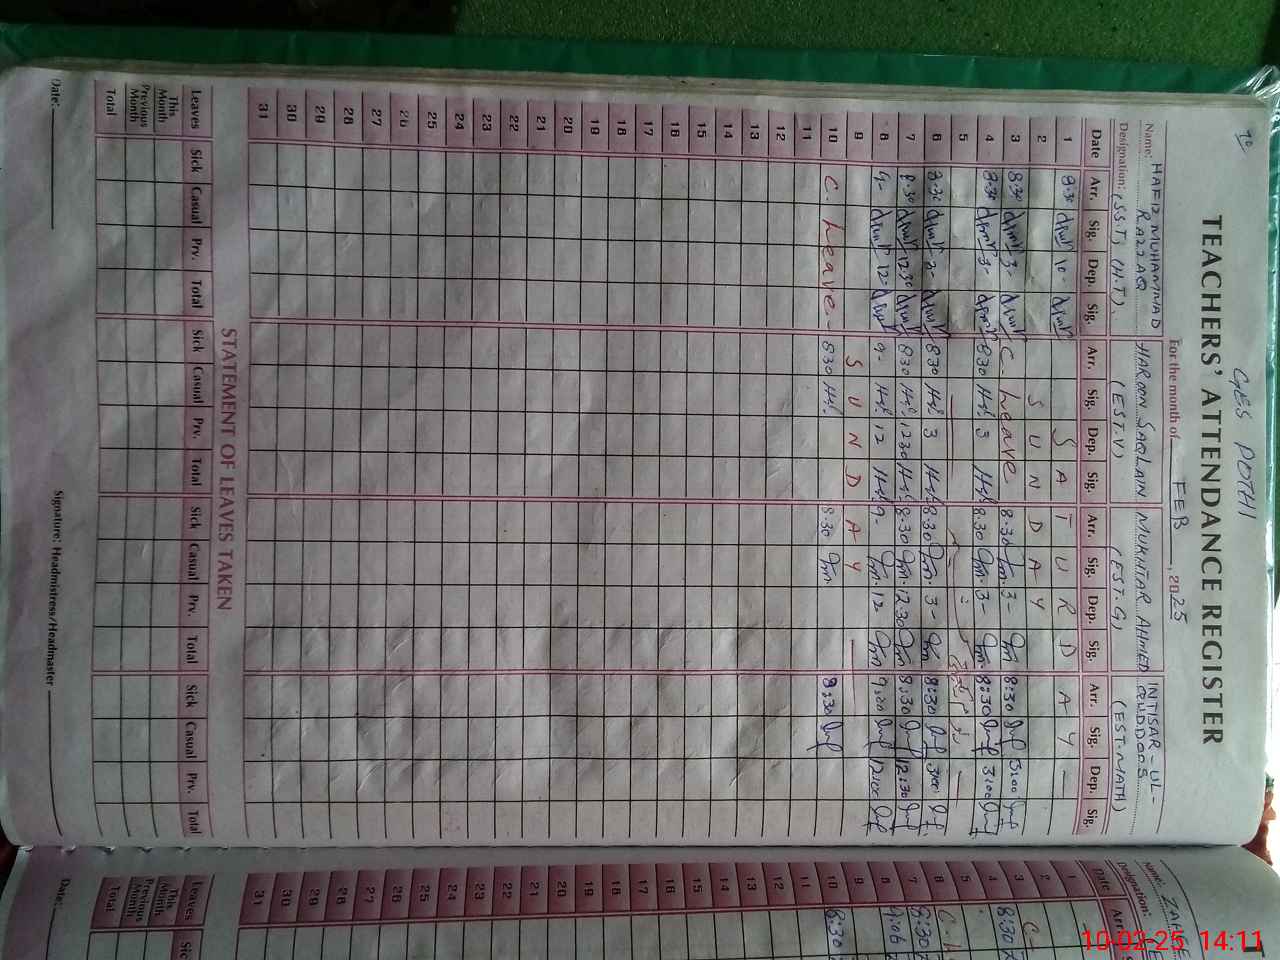 70
GES POTHI
TEACHERS' ATTENDANCE REGISTER
For the month of FEB, 2025
Name: HAFIZ MUHAMMAD RAZZAQ HAROON SAQLAIN MUKHTAR AHMED INTISAR-UL-QUDDOOS
Designation: (SST) (H.T). (EST.V) (EST.G) (EST.MATH)
Date Arr. Sig. Dep. Sig. Arr. Sig. Dep. Sig. Arr. Sig. Dep. Sig. Arr. Sig. Dep. Sig.
1 8:30 10- S A T U R D A Y
2 S U N D A Y
3 8:30 3- C- Leave 8:30 3- 8:30 3:00
4 8:30 3- 830 3 8.30 3- 8:30 3:00
5
6 8:30 3- 830 3 8:30 3- 8:30 3:00
7 8:30 1230 830 1230 8:30 12.30 8:30 12:30
8 9- 12- 9- 12 9- 12 9:00 12:00
9 S U N D A Y
10 C- Leave- 830 8:30 8:30
11
12
13
14
15
16
17
18
19
20
21
22
23
24
25
26
27
28
29
30
31
STATEMENT OF LEAVES TAKEN
Leaves Sick Casual Prv. Total Sick Casual Prv. Total Sick Casual Prv. Total Sick Casual Prv. Total
This Month
Previous Month
Total
Date: Signature: Headmistress/Headmaster
Name:
Designation:
Date Arr
1
2 C-
3 8:30
4
5
6 C-
7 8:30
8 9:06
9
10 8:30
11
12
13
14
15
16
17
18
19
20
21
22
23
24
25
26
27
28
29
30
31
Leaves
This Month
Previous Month
Total
Date:
10-02-25 14:11